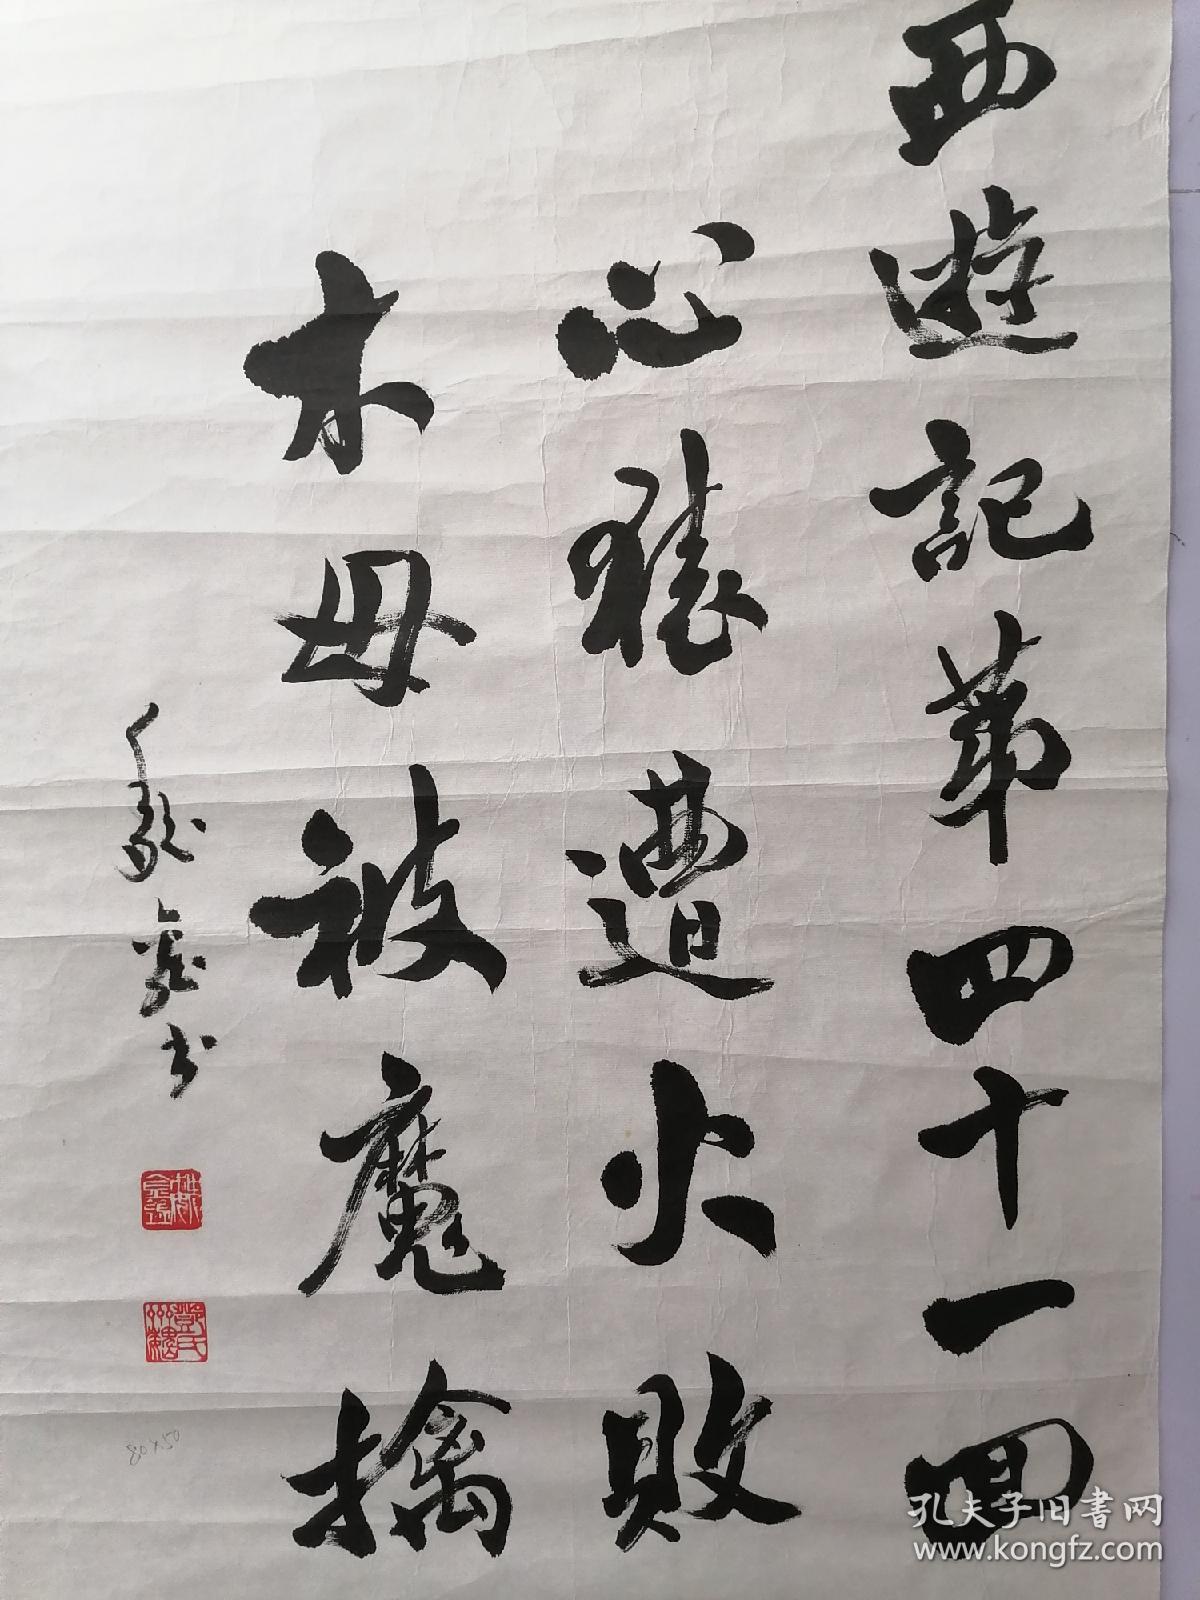 西遊記第四十一回
心猿遭火敗
木母被魔擒
80×50
孔夫子旧书网
www.kongfz.com